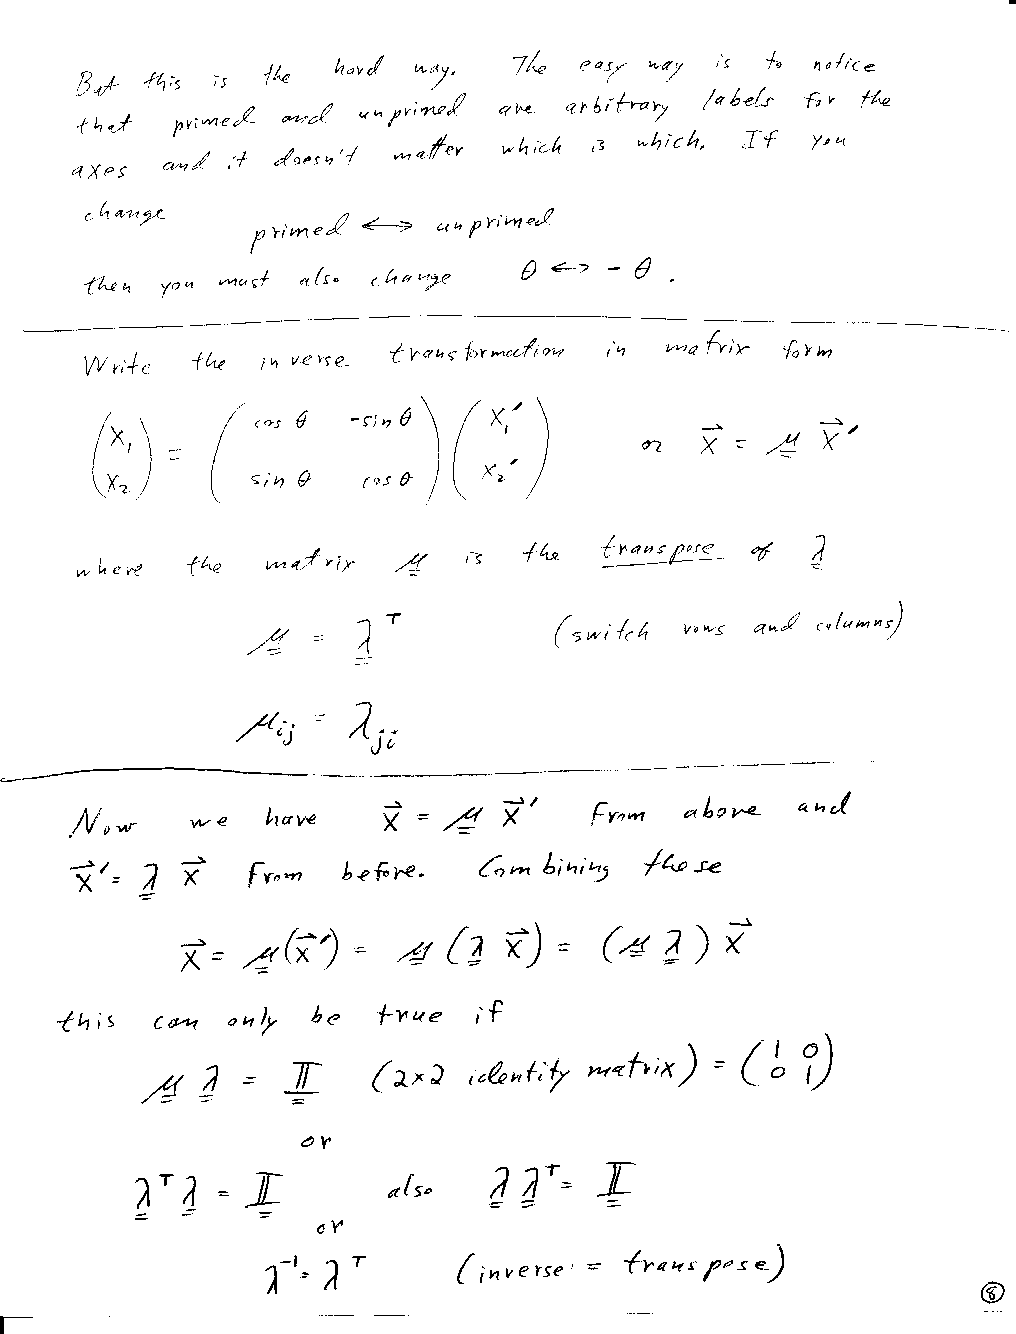 But this is the hard way. The easy way is to notice
that primed and unprimed are arbitrary labels for the
axes and it doesn't matter which is which. If you
change
primed ↔ unprimed
then you must also change θ ↔ -θ .
Write the inverse transformation in matrix form
(x₁ x₂) = (cos θ -sin θ sin θ cos θ) (x₁′ x₂′) or x⃗ = μ x⃗′
where the matrix μ is the transpose of λ
μ = λᵀ (switch rows and columns)
μij = λji
Now we have x⃗ = μ x⃗′ from above and
x⃗′ = λ x⃗ from before. Combining these
x⃗ = μ(x⃗′) = μ (λ x⃗) = (μ λ) x⃗
this can only be true if
μ λ = 𝕀 (2×2 identity matrix) = (1 0 0 1)
or
λᵀ λ = 𝕀 also λ λᵀ = 𝕀
or
λ⁻¹ = λᵀ (inverse = transpose)
8